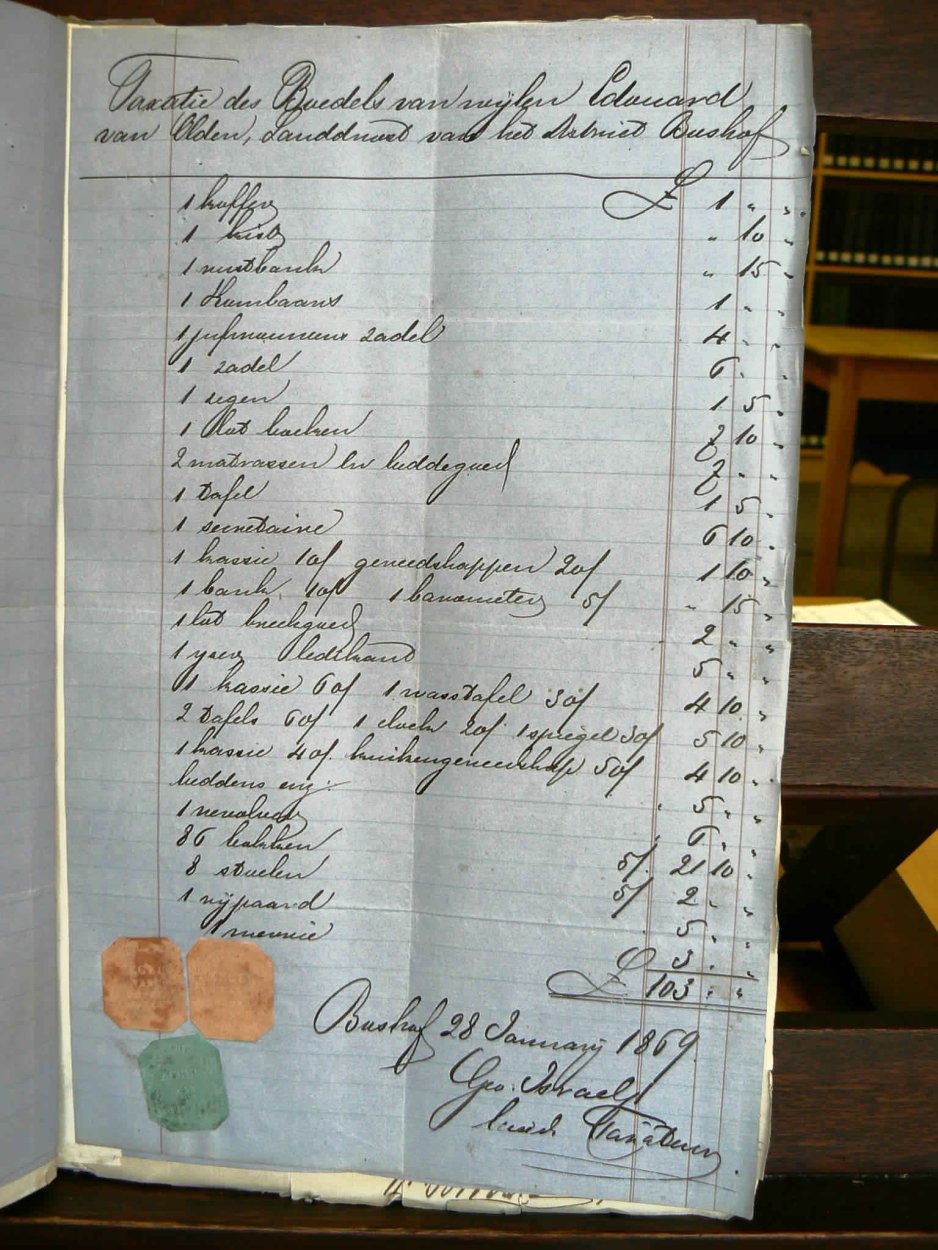 Taxatie des Boedels van wijlen Edouard
van Olden, Landdrost van het District Boshof
1 koffer £ 1 " "
1 kist " 10 "
1 rustbank " 15 "
1 Kombaars 1 " "
1 jufvrouwens zadel 4 " "
1 zadel 6 " "
1 degen 1 5 "
1 Lot boeken 2 10 "
2 matrassen en beddegoed 2 " "
1 Tafel 1 5 "
1 secretaire 6 10 "
1 kassie 10/ gereedschappen 20/ 1 10 "
1 bank 10/ 1 barometer 5/ " 15 "
1 lot breekgoed 2 " "
1 yser ledekant 5 " "
1 kassie 60/ 1 wasstafel 30/ 4 10 "
2 Tafels 60/ 1 clock 20/ 1 spiegel 30/ 5 10 "
1 kassie 40/ keukengereedschap 50/ 4 10 "
beddens enz: 5 " "
1 revolver 6 " "
86 bokken 5/ 21 10 "
8 stoelen 5/ 2 " "
1 rijpaard 5 " "
1 merrie 3 " "
£ 103 " "
Boshof 28 January 1869
Geo: Israels
Taxateur